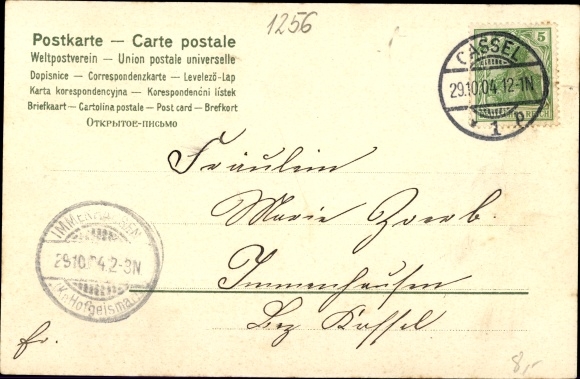 1256
Postkarte — Carte postale
Weltpostverein — Union postale universelle
Dopisnice — Correspondenzkarte — Levelező-Lap
Karta korespondencyjna — Korespondenční lístek
Briefkaart — Cartolina postale — Post card — Brefkort
Открытое-письмо
5
REICH
CASSEL
29.10.04.12-1N
1 p
Fräulein
Marie Zoerb.
Immenhausen
Bez Kassel
IMMENHAUSEN
29.10.04.2-3N
(Kr. Hofgeismar)
fr.
8,-